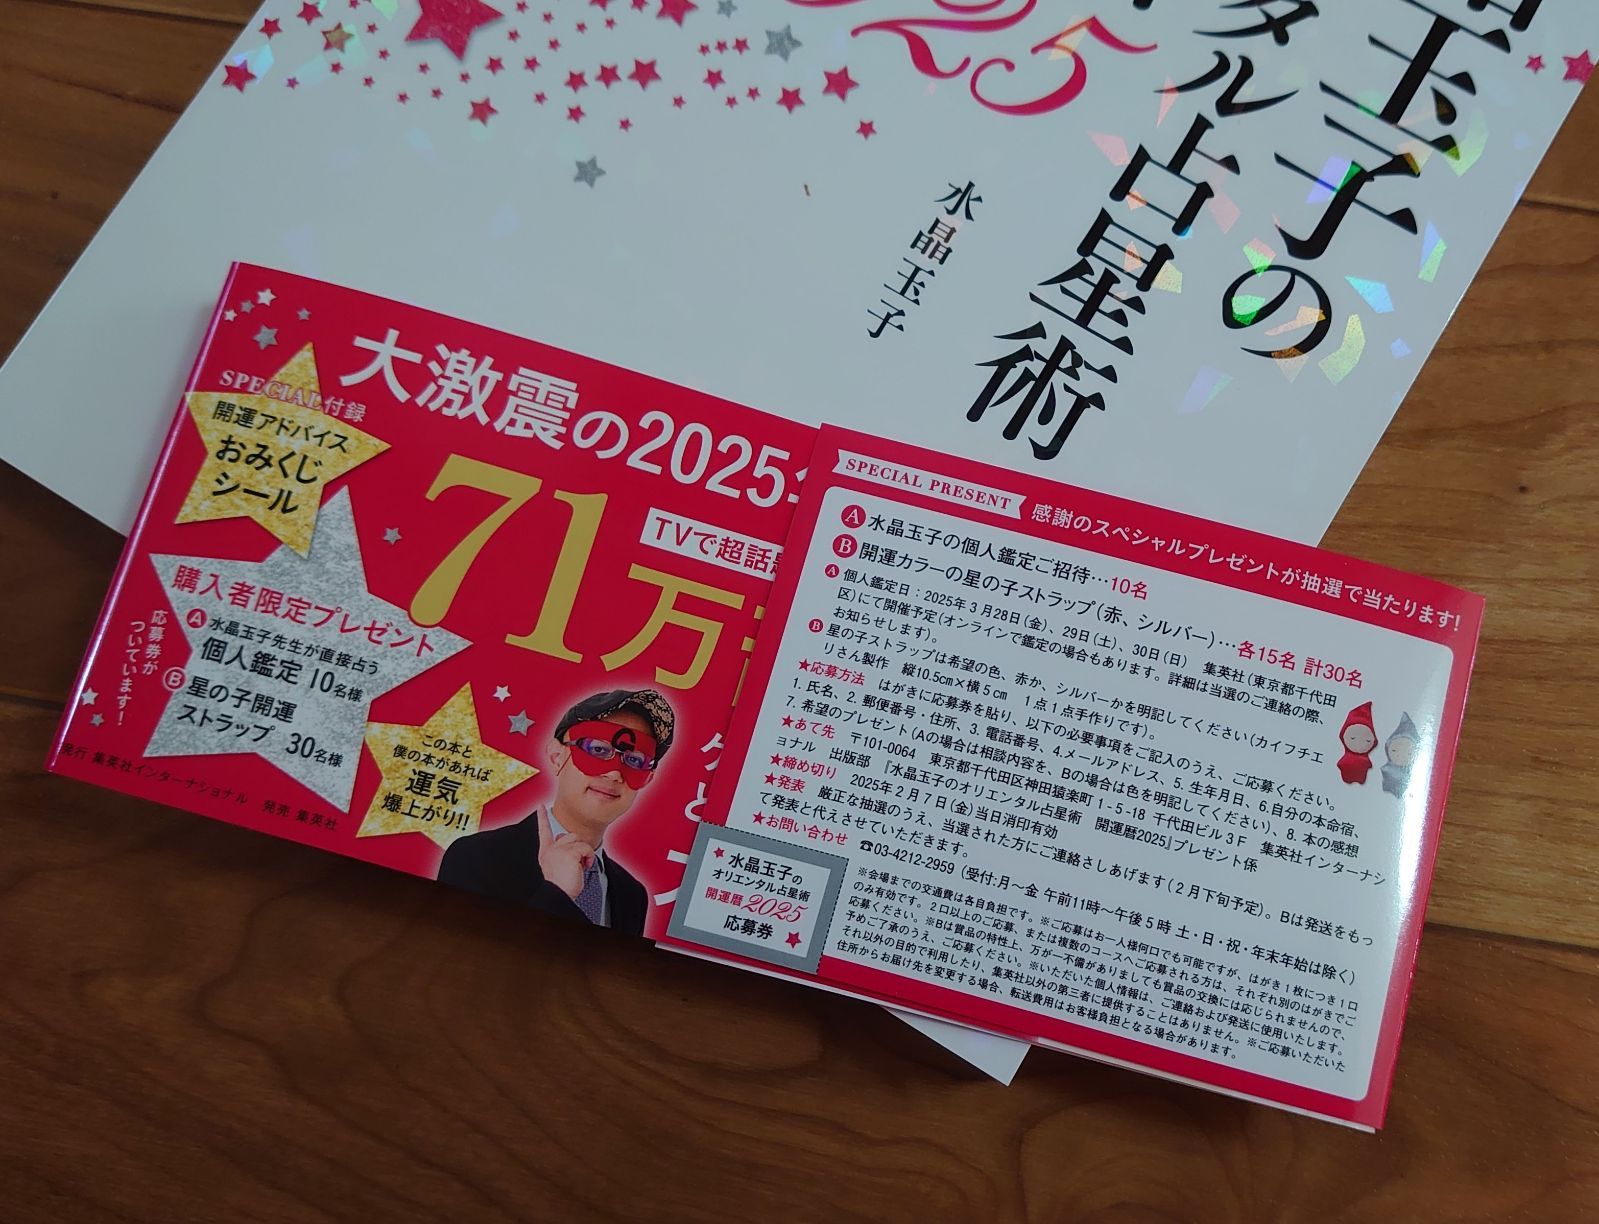 25
玉子の
タル占星術
水晶玉子
大激震の2025
SPECIAL付録
開運アドバイス
おみくじ
シール
TVで超話題
71万
購入者限定プレゼント
応募券が
ついています!
A 水晶玉子先生が直接占う
個人鑑定 10名様
B 星の子開運
ストラップ 30名様
この本と
僕の本があれば
運気
爆上がり!!
G
発行 集英社インターナショナル 発売 集英社
SPECIAL PRESENT 感謝のスペシャルプレゼントが抽選で当たります!
A 水晶玉子の個人鑑定ご招待…10名
B 開運カラーの星の子ストラップ(赤、シルバー)…各15名 計30名
A 個人鑑定日:2025年3月28日(金)、29日(土)、30日(日) 集英社(東京都千代田
区)にて開催予定(オンラインで鑑定の場合もあります。詳細は当選のご連絡の際、
お知らせします)。
B 星の子ストラップは希望の色、赤か、シルバーかを明記してください(カイフチエ
リさん製作 縦10.5cm×横5cm 1点1点手作りです)。
★応募方法 はがきに応募券を貼り、以下の必要事項をご記入のうえ、ご応募ください。
1. 氏名、2. 郵便番号・住所、3. 電話番号、4.メールアドレス、5. 生年月日、6.自分の本命宿、
7. 希望のプレゼント(Aの場合は相談内容を、Bの場合は色を明記してください)、8. 本の感想
★あて先 〒101-0064 東京都千代田区神田猿楽町1-5-18 千代田ビル3F 集英社インターナシ
ョナル 出版部 『水晶玉子のオリエンタル占星術 開運暦2025』プレゼント係
★締め切り 2025年2月7日(金)当日消印有効
★発表 厳正な抽選のうえ、当選された方にご連絡さしあげます(2月下旬予定)。Bは発送をもっ
て発表と代えさせていただきます。
★お問い合わせ ☎03-4212-2959 (受付:月〜金 午前11時〜午後5時 土・日・祝・年末年始は除く)
※会場までの交通費は各自負担です。※ご応募はお一人様何口でも可能ですが、はがき1枚につき1口
のみ有効です。2口以上のご応募、または複数のコースへご応募される方は、それぞれ別のはがきでご
応募ください。※Bは賞品の特性上、万が一不備がありましても賞品の交換には応じられませんので、
予めご了承のうえ、ご応募ください。※いただいた個人情報は、ご連絡および発送に使用いたします。
それ以外の目的で利用したり、集英社以外の第三者に提供することはありません。※ご応募いただいた
住所からお届け先を変更する場合、転送費用はお客様負担となる場合があります。
水晶玉子の
オリエンタル占星術
開運暦2025
応募券